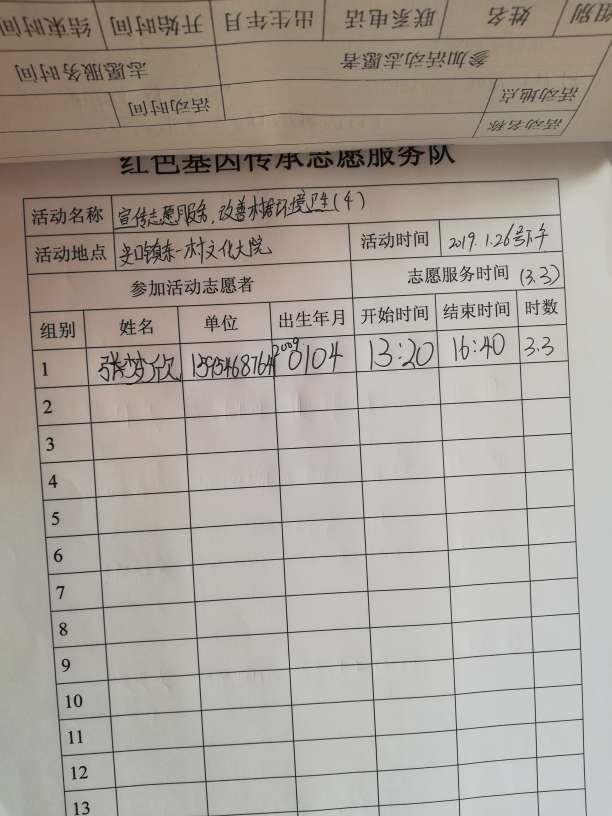 组别 姓名 联系电话 出生年月 开始时间 结束时间
参加活动志愿者 志愿服务时间
活动地点 活动时间
活动名称
红色基因传承志愿服务队
活动名称 宣传志愿服务,改善村居环境卫生(4)
活动地点 安口镇东一村文化大院 活动时间 2019.1.26号下午
参加活动志愿者 志愿服务时间 (3.3)
组别 姓名 单位 出生年月 开始时间 结束时间 时数
1 张梦欣 13954687641 20090104 13:20 16:40 3.3
2
3
4
5
6
7
8
9
10
11
12
13